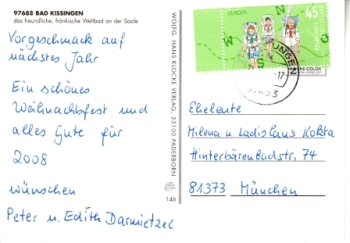 97688 BAD KISSINGEN
das freundliche, fränkische Weltbad an der Saale
Vorgeschmack auf
nächstes Jahr
Ein schönes
Weihnachtsfest und
alles Gute für
2008
wünschen
Peter u. Edith Darmietzel
WOLFG. HANS KLOCKE VERLAG, 33100 PADERBORN
146
EUROPA
45
Eheleute
Milena u Ladislaus Kokta
Hinterbärenbadstr. 74
81373 München